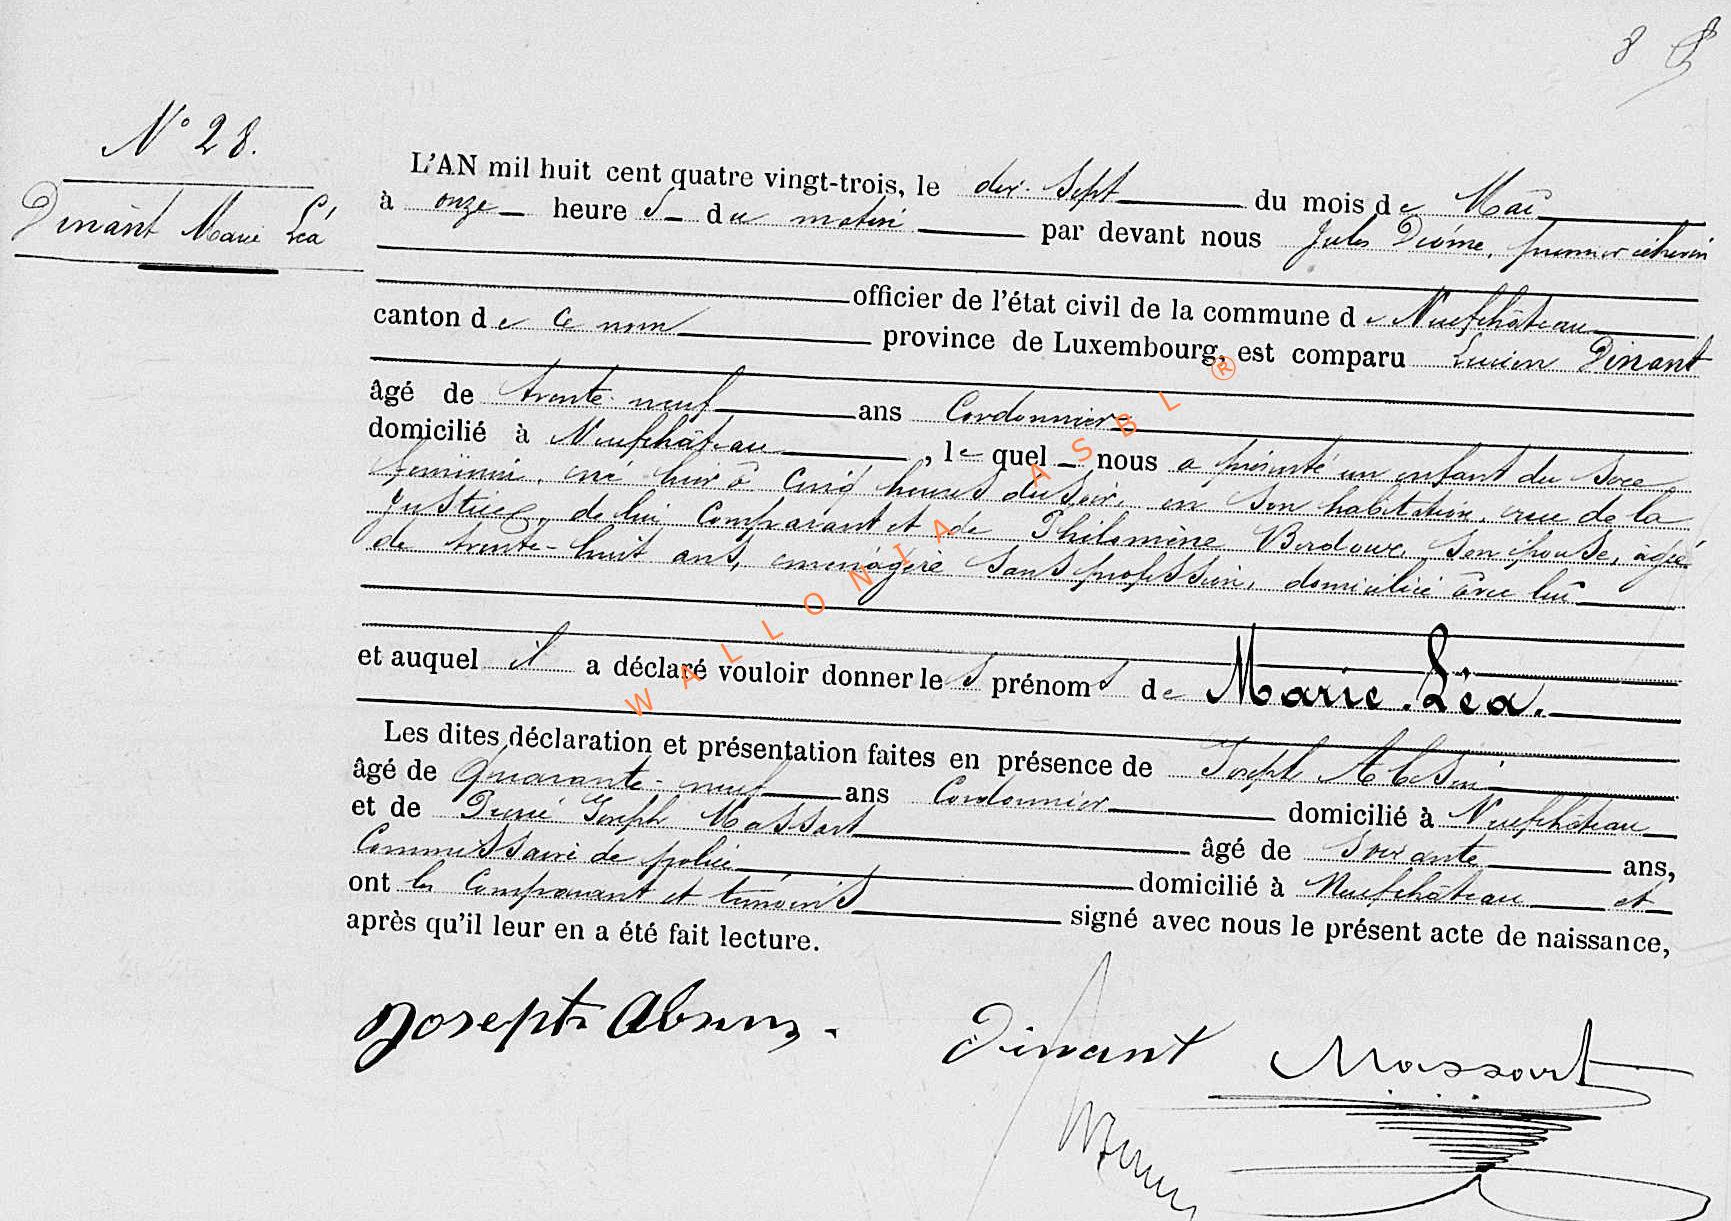 8
N° 28.
Dinant Marie Léa
L'AN mil huit cent quatre vingt-trois, le dix-sept du mois de Mai
à onze heures du matin par devant nous Jules Diôme, premier échevin
officier de l'état civil de la commune de Neufchâteau
canton de ce nom province de Luxembourg, est comparu Lucien Dinant
âgé de trente-neuf ans Cordonnier
domicilié à Neufchâteau, lequel nous a présenté un enfant du sexe
féminin, né hier à cinq heures du soir, en son habitation, rue de la
Justice, de lui comparant et de Philomène Bordoux, son épouse, âgée
de trente-huit ans, ménagère sans profession, domiciliée avec lui
et auquel il a déclaré vouloir donner les prénoms de Marie-Léa.
Les dites déclaration et présentation faites en présence de Joseph
âgé de quarante-neuf ans Cordonnier domicilié à Neufchâteau
et de Joseph Massart âgé de soixante ans,
Commissaire de police domicilié à Neufchâteau et
ont les comparant et témoins signé avec nous le présent acte de naissance,
après qu'il leur en a été fait lecture.
Joseph Dinant Massart
WALLONIA ASBL ®